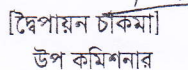 [দ্বৈপায়ন চাকমা]
উপ কমিশনার